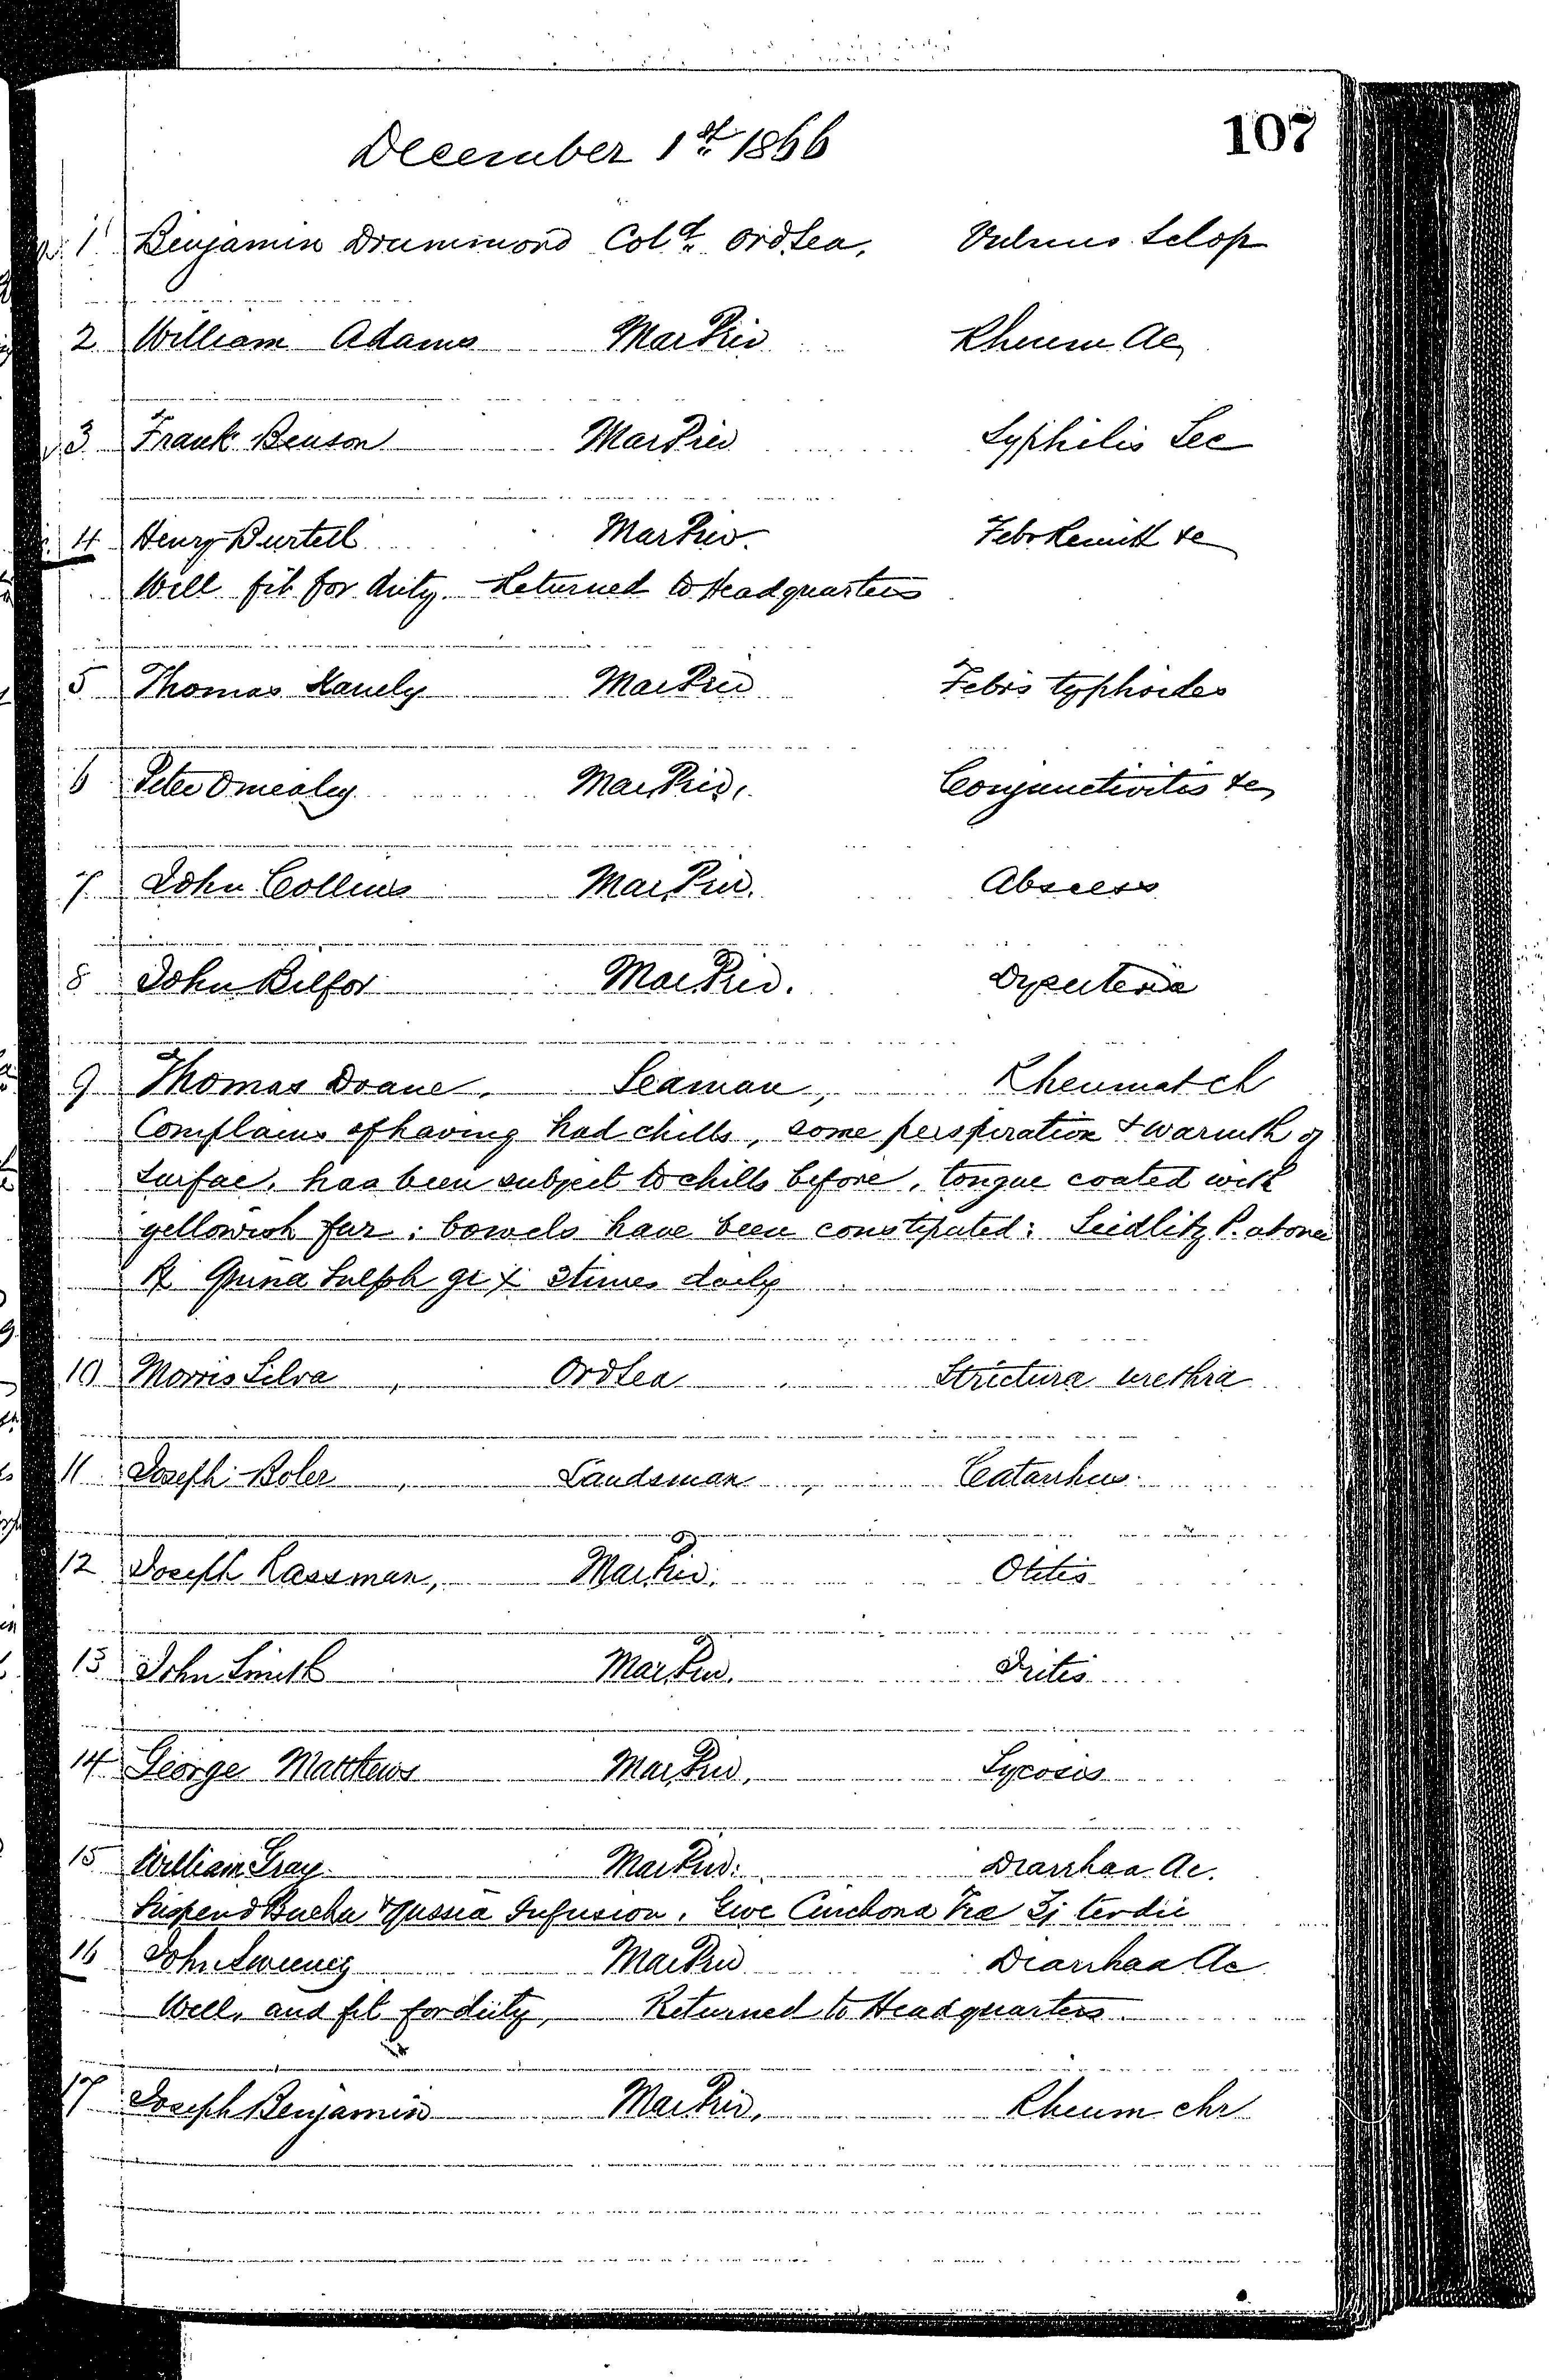 107
December 1st 1866
1 Benjamin Drummond Cold OrdSea, Vulnus Sclop
2 William Adams Mar Priv Rheum Ac
3 Frank Benson Mar Priv Syphilis Sec
4 Henry Burtell Mar Priv. Feb Remitt &c
Well fit for duty. Returned to Headquarters
5 Thomas Mar Priv Febris typhoides
6 Peter Omealey Mar Priv, Conjunctivitis &c
7 John Collins Mar, Priv. Abscess
8 John Bilfor Mar Priv. Dysenteria
9 Thomas Doane, Seaman, Rheumat ch
Complains of having had chills, some perspiration & warmth of
surface, has been subject to chills before, tongue coated with
yellowish fur; bowels have been constipated: Seidlitz P. at once
℞ Quina Sulph gr x 3 times daily
10 Morris Silva, OrdSea, Strictura urethra
11 Joseph Boler, Landsman, Catarrhus.
12 Joseph Rassman, Mar, Priv. Otitis
13 John Smith Mar, Priv. Iritis
14 George Matthews Mar, Priv, Sycosis
15 William Gray. Mar Priv. Diarrhaa Ac.
Suspend Buchu & Infusion. Give Cinchona Tra ʒj terdie
16 John Sweeney Mar Priv Diarrhaa Ac
Well, and fit for duty, Returned to Headquarters.
17 Joseph Benjamin Mar Priv, Rheum chr